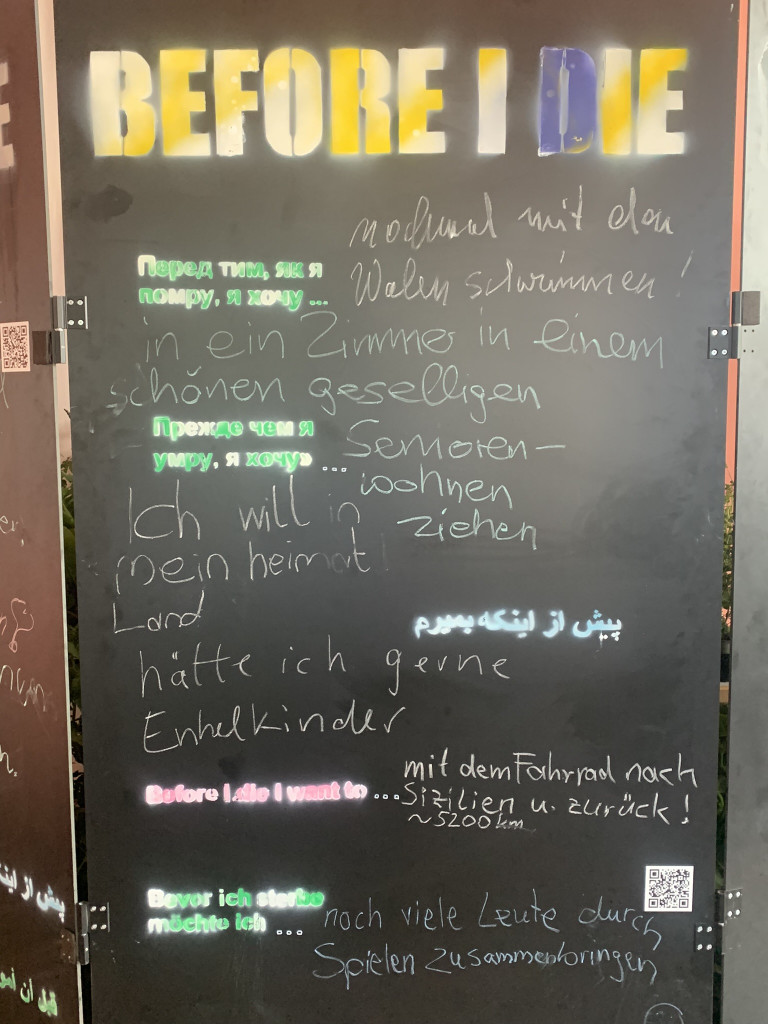 BEFORE I DIE
nochmal mit den
Перед тим, як я
Walen schwimmen!
помру, я хочу ...
in ein Zimmer in einem
schönen geselligen
Прежде чем я
Senioren-
умру, я хочу» ...
wohnen
Ich will in
ziehen
mein heimat!
Land
پیش از اینکه بمیرم
hätte ich gerne
Enkelkinder
mit dem Fahrrad nach
Before I die I want to ...
Sizilien u. zurück!
~5200 km
Bevor ich sterbe
möchte ich ...
noch viele Leute durch
Spielen zusammenbringen
پیش از این
قبل أن أمو